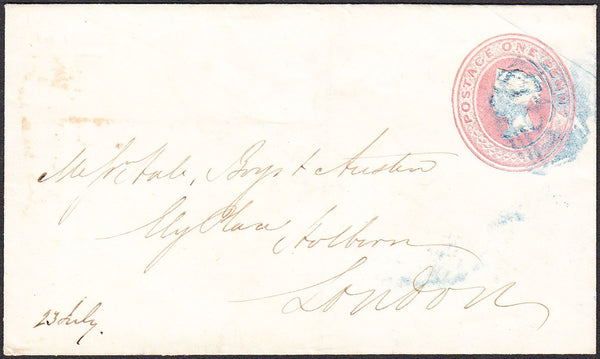 POSTAGE ONE PENNY
Messrs Hale, Boys & Austen
Ely Place Holborn
London
23 July.